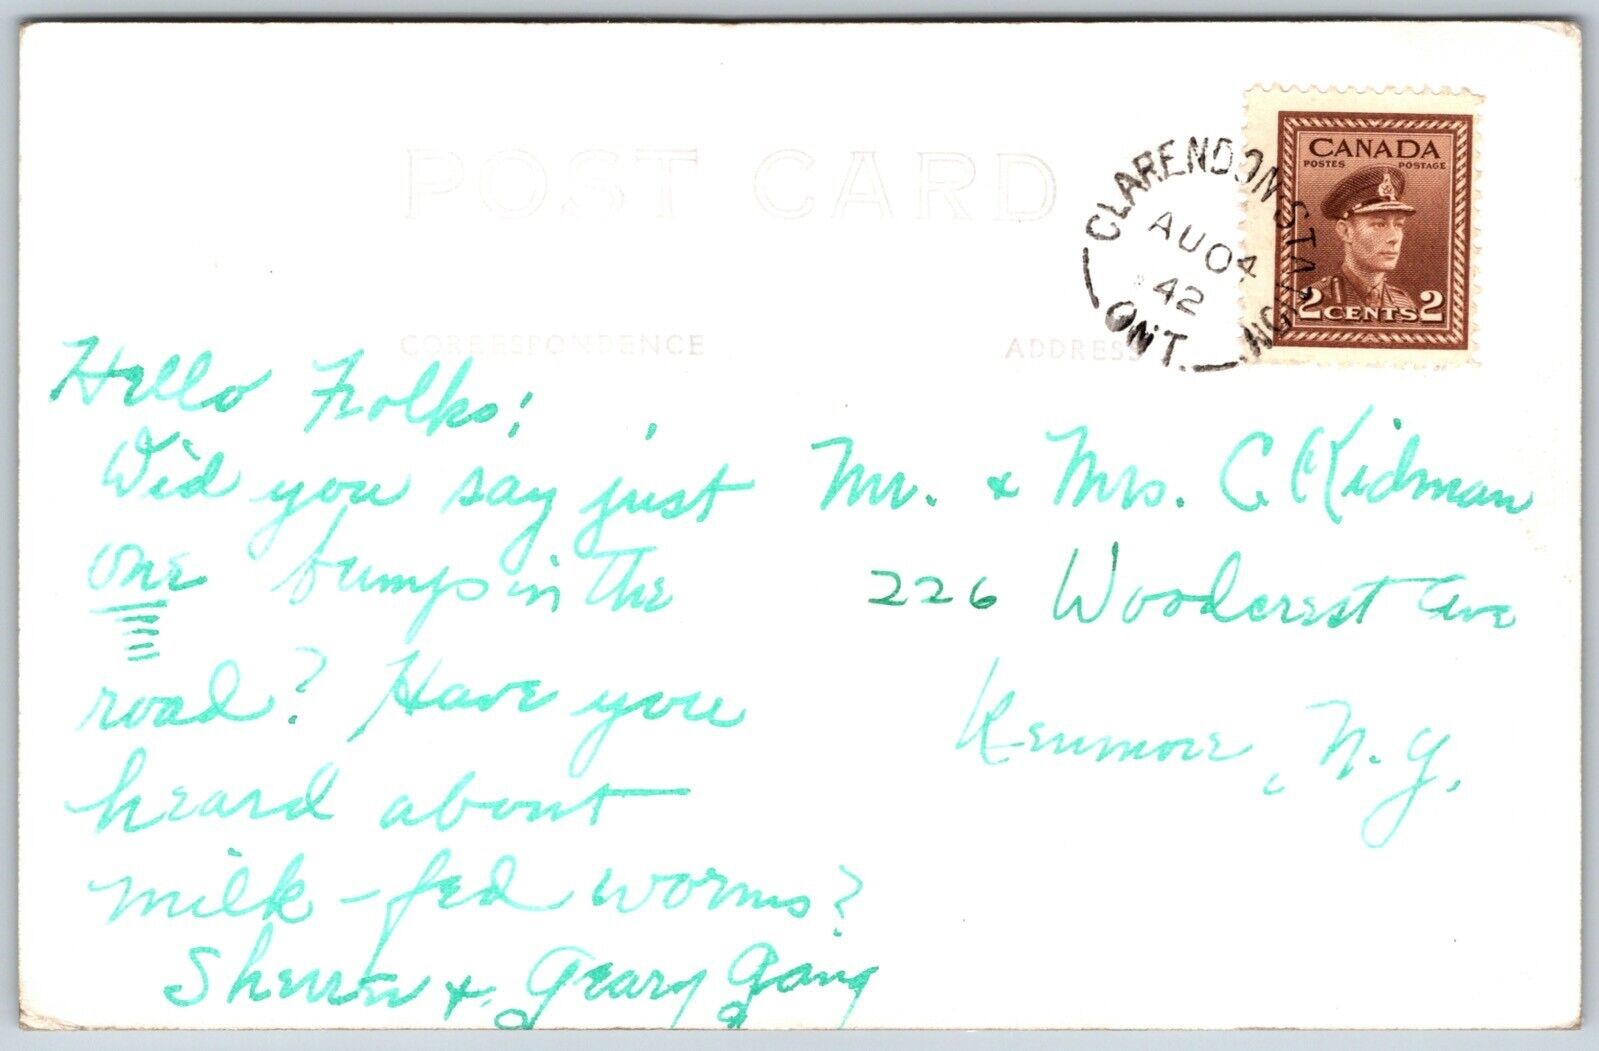 POST CARD
CANADA
POSTES POSTAGE
2 CENTS 2
CLARENDON STATION
AU 04
42
ONT.
CORRESPONDENCE
ADDRESS
Hello Folks!
Did you say just
one bumps in the
road? Have you
heard about
milk-fed worms?
& Geary Gang
Mr. & Mrs. C Kidman
226 Woodcrest Ave
Kenmore, N.Y.